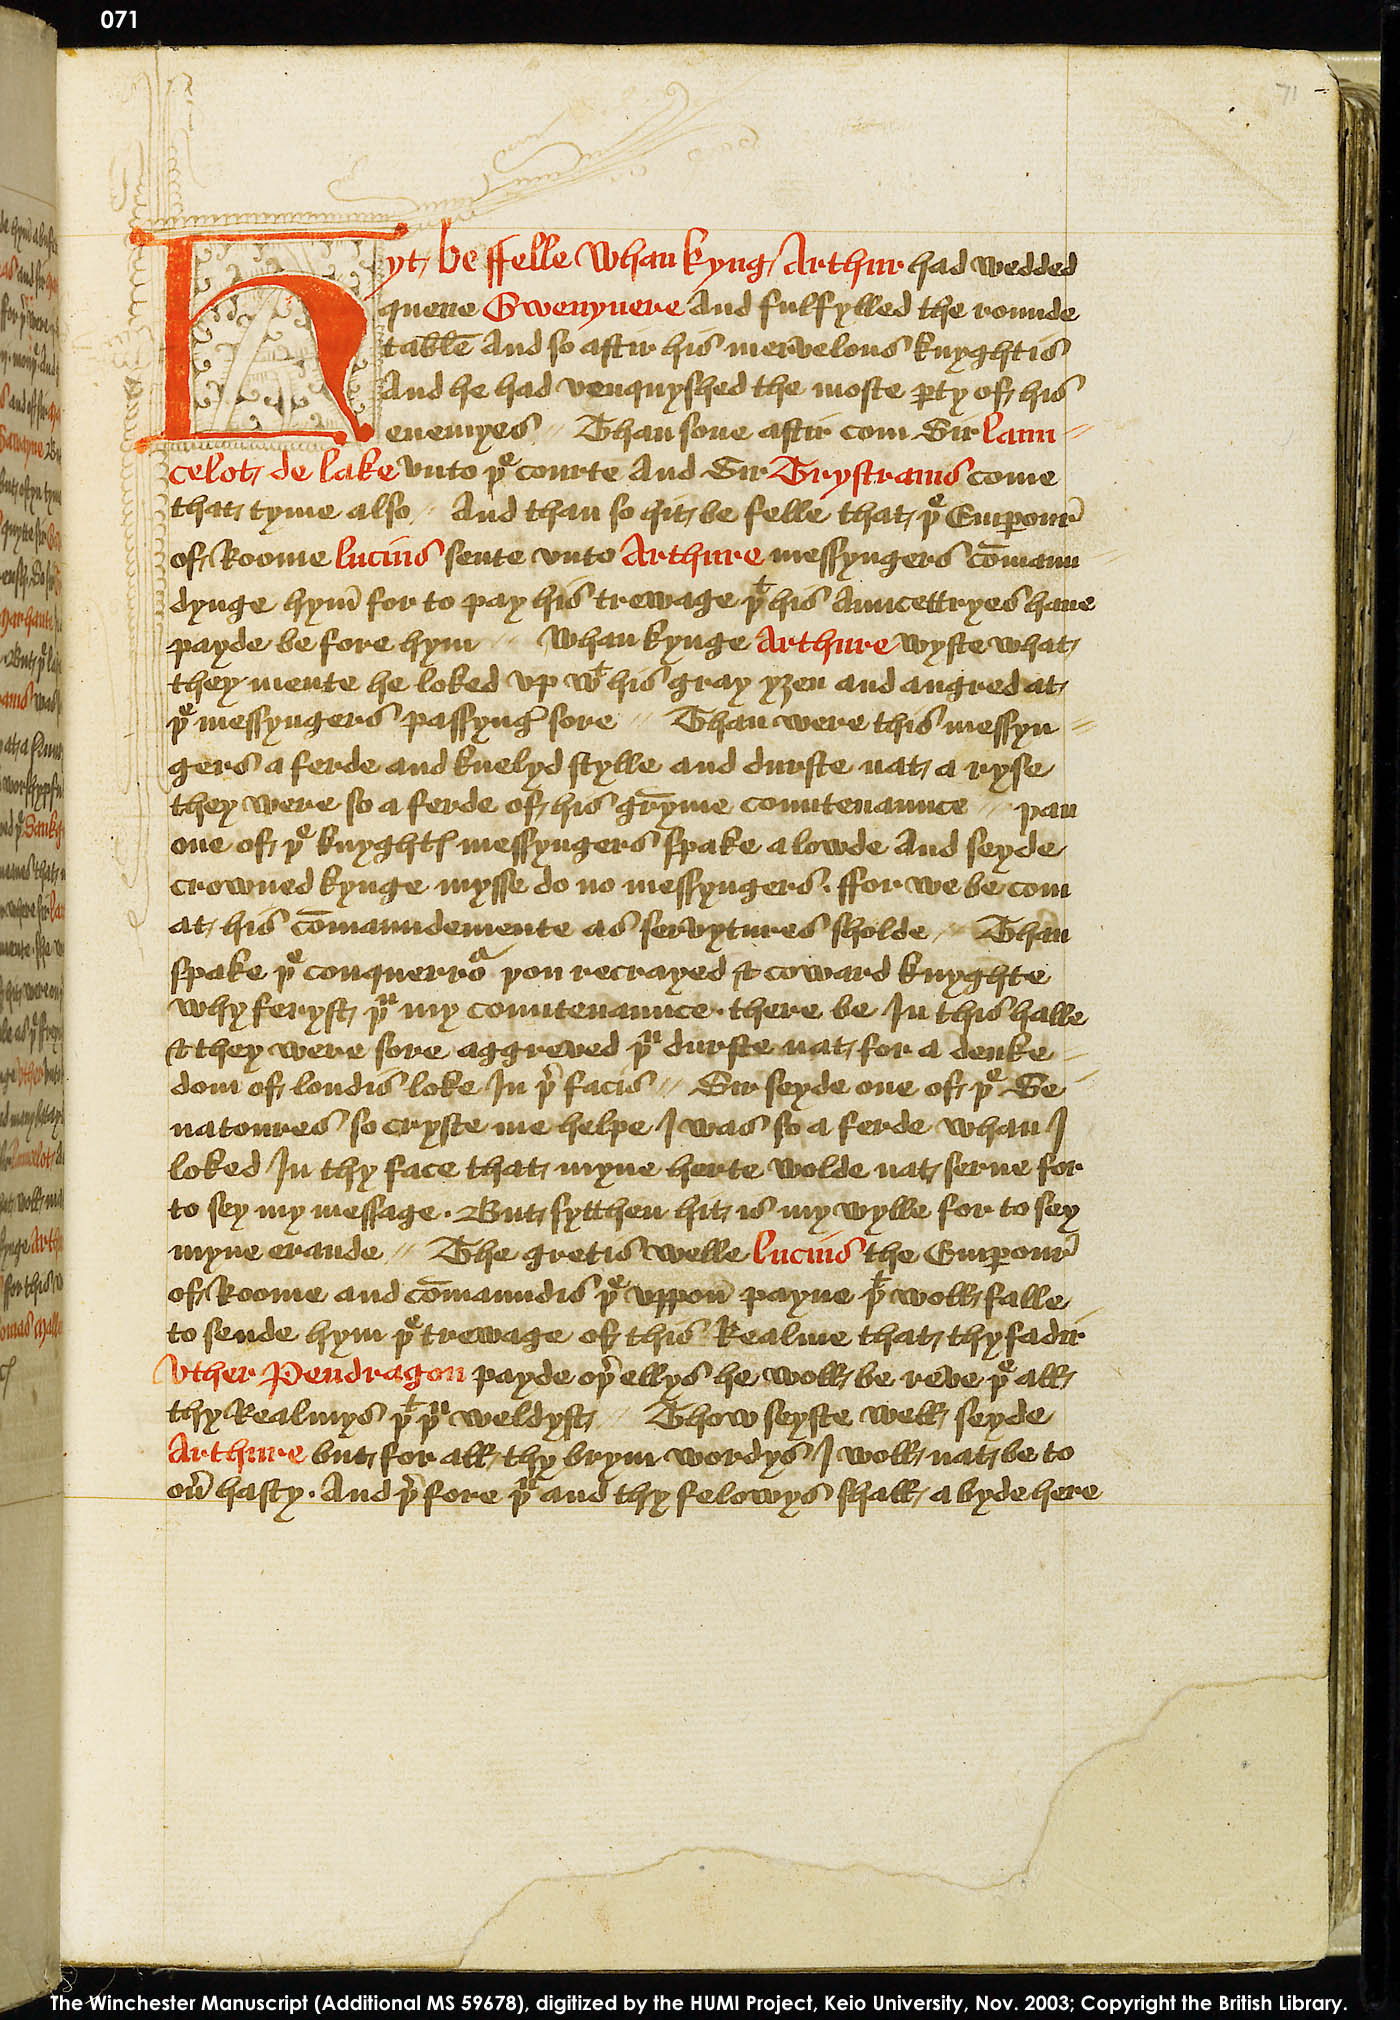 071
71
Hyt be ffelle whan kyng Arthur had wedded
quene Gwenyvere And fulfylled the rounde
table And so aftir his mervelous knyghtis
And he had venquyshed the moste pty of his
enemyes // Than sone aftir com Sir Laun=
celot de lake vnto þe courte And Sir Trystrams come
that tyme also // And than so hit be felle that þe Emperour
of Roome lucius sente vnto Arthure messyngers comaun
dynge hym for to pay his trewage þt his Auncettryes haue
payde be fore hym // Whan kynge Arthure wyste what
they mente he loked vp wt his gray yȝen and angred at
þe messyngers passyng sore // Than were this messyn=
gers a ferde and knelyd stylle and durste nat a ryse
they were so a ferde of his gryme countenaunce // þan
one of þe knyghtes messyngers spake a lowde And seyde
crowned kynge mysse do no messyngers. ffor we be com
at his comaundemente as servytures sholde // Than
spake þe conquerroʳ you recrayed & coward knyghte
why feryst þu my countenaunce. there be In this halle
& they were sore aggreved þu durste nat for a deuke
dom of londis loke In þr facis // Sir seyde one of þe Se
natoures so cryste me helpe I was so a ferde whan I
loked In thy face that myne herte wolde nat serue for
to sey my message. But sytthen hit is my wylle for to sey
myne erande // The gretis welle lucius the Emperour
of Roome and comaundis þe vppon payne þt woll falle
to sende hym þe trewage of this Realme that thy fadir
Vther Pendragon payde oþr ellys he woll be reve þe all
thy Realmys þt þu weldyst // Thow seyste well seyde
Arthure but for all thy brym wordys I woll nat be to
ouer hasty. And þr fore þu and thy felowys shall a byde here
The Winchester Manuscript (Additional MS 59678), digitized by the HUMI Project, Keio University, Nov. 2003; Copyright the British Library.